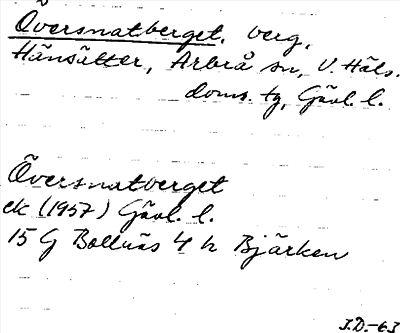 Översnatberget, berg,
Hänsätter, Arbrå sn, V. Häls.
doms. tg, Gävl. l.
Översnatberget
ek (1957) Gävl. l.
15 G Bollnäs 4 h Bjärken
J.D.-63